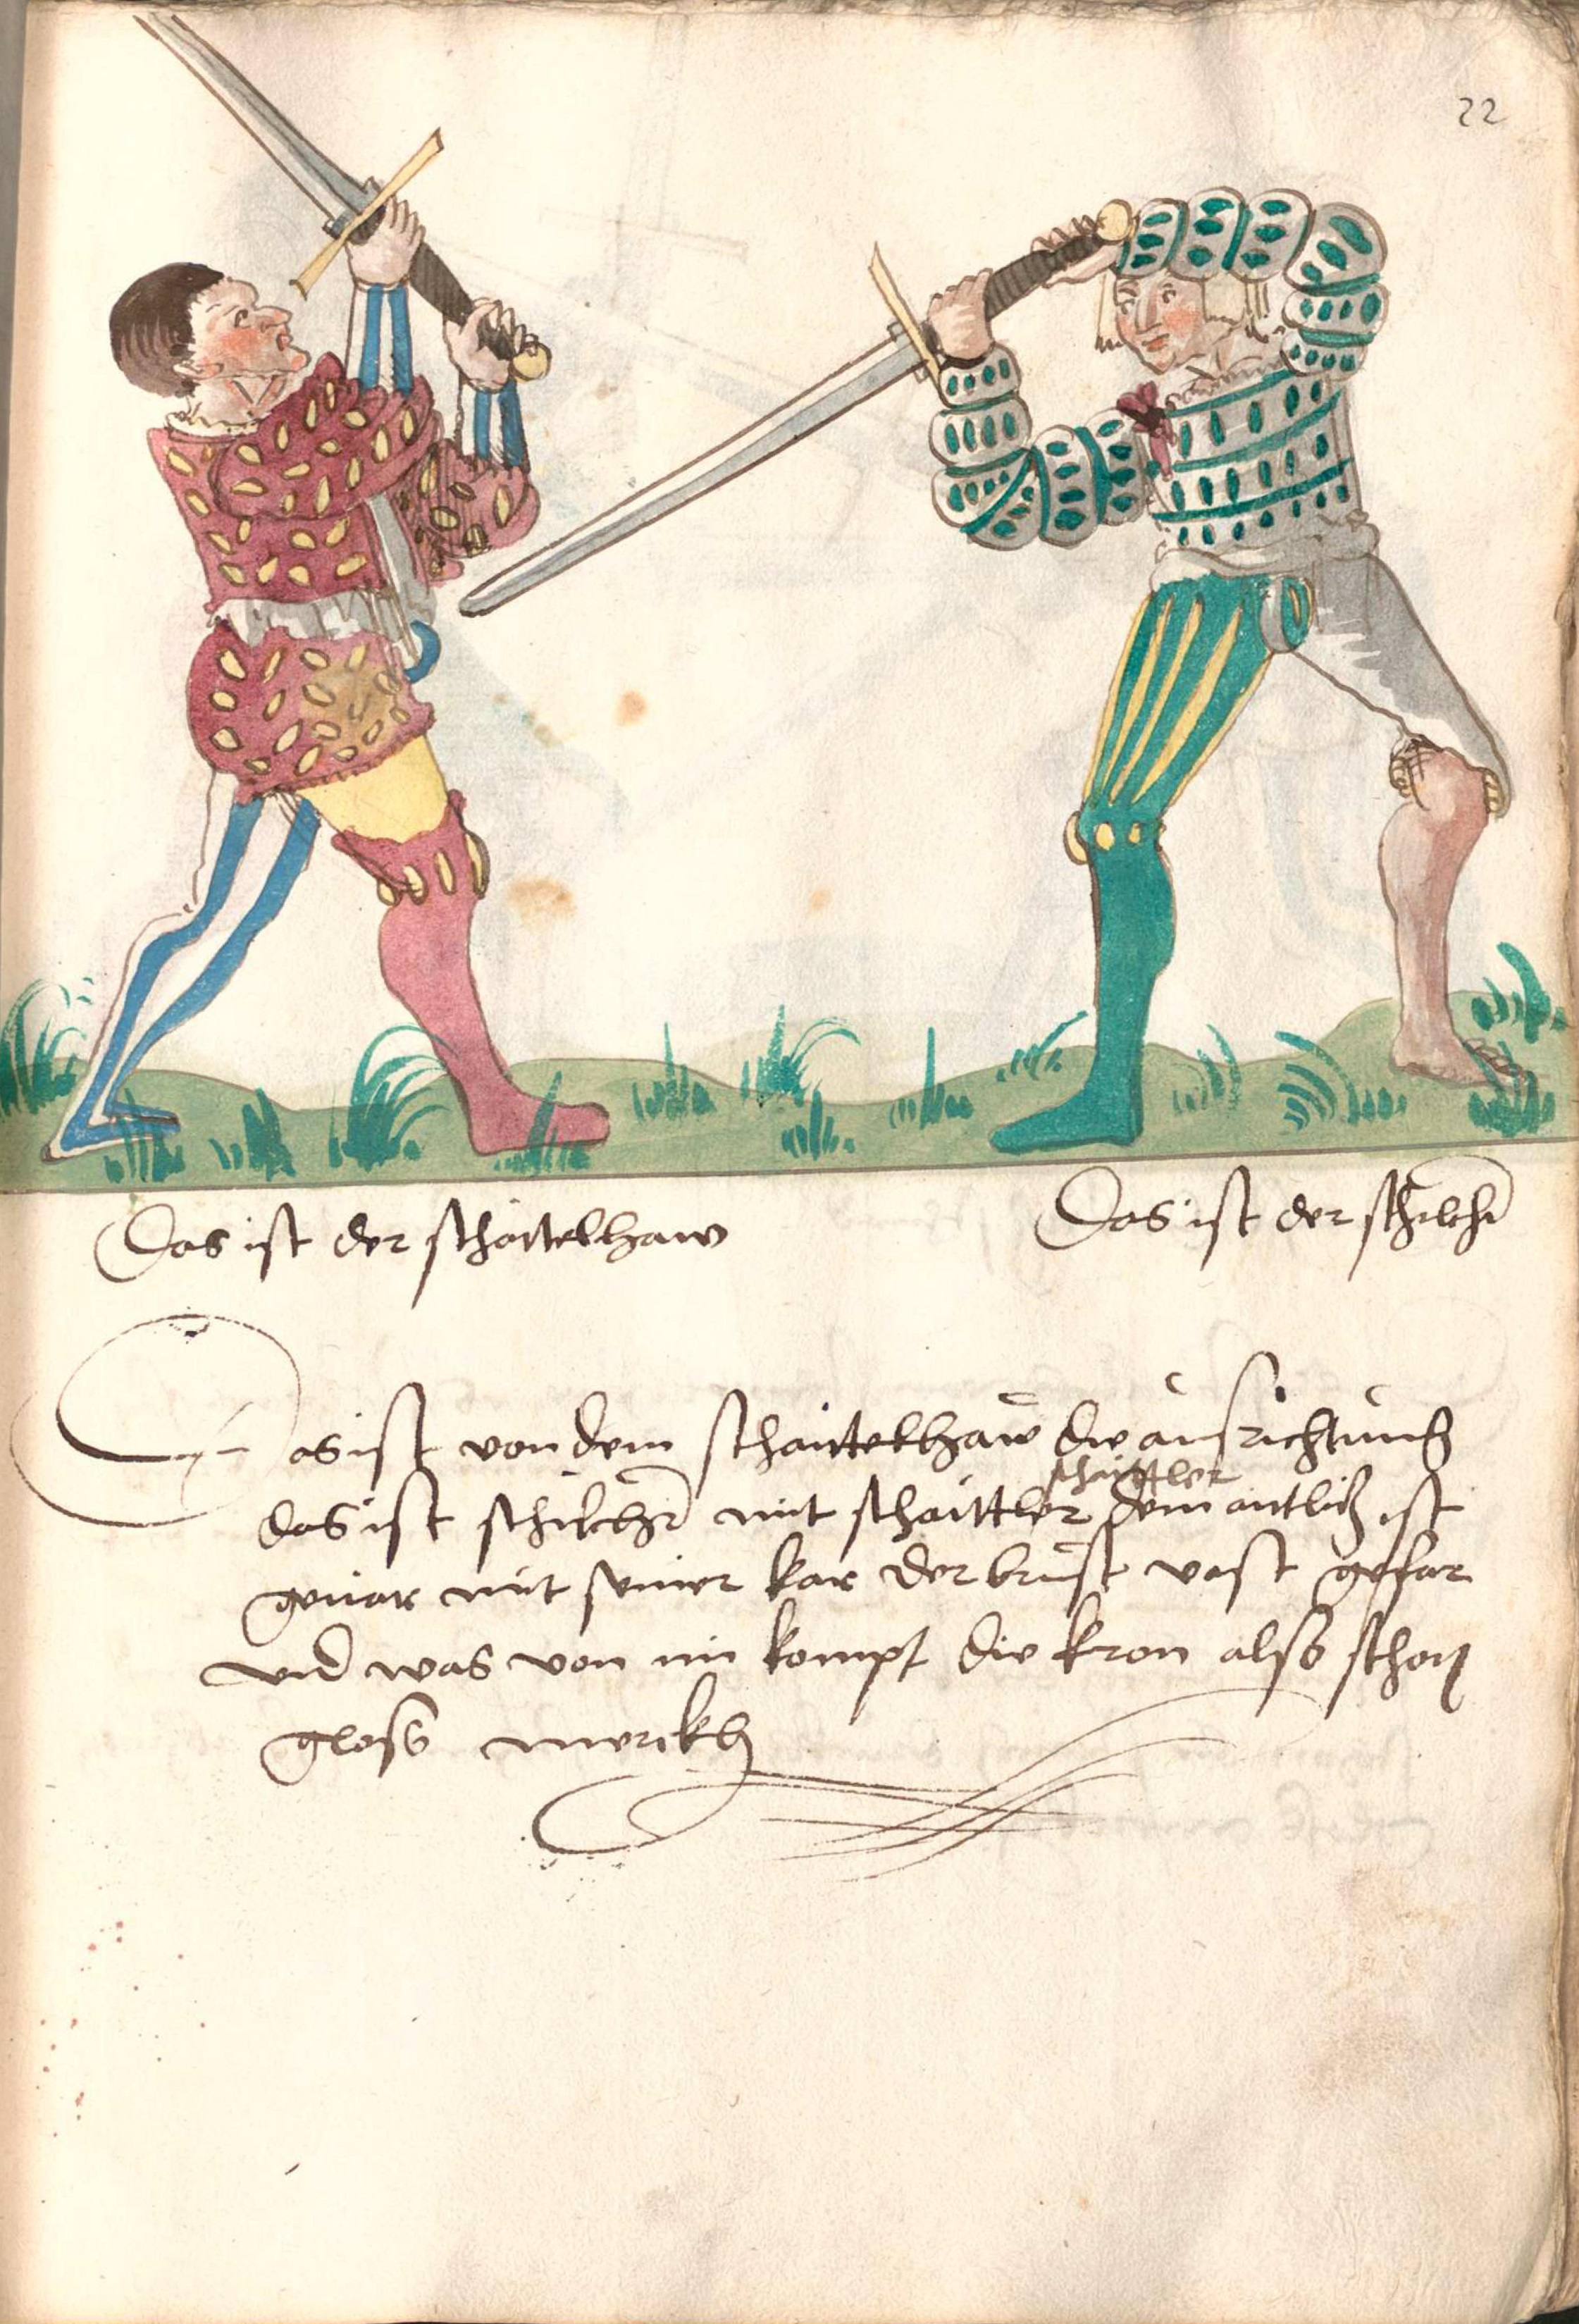 22
Das ist der schaittelhaw
Das ist der schilchr
Das ist von dem schaittelhaw die ausrichtung
schaittler
das ist schilchr mit schaittler dem antlitz ist
gevar mit seiner kar der brust vast gefar
vnd was von im kompt die kron alls schon
gloss merckh